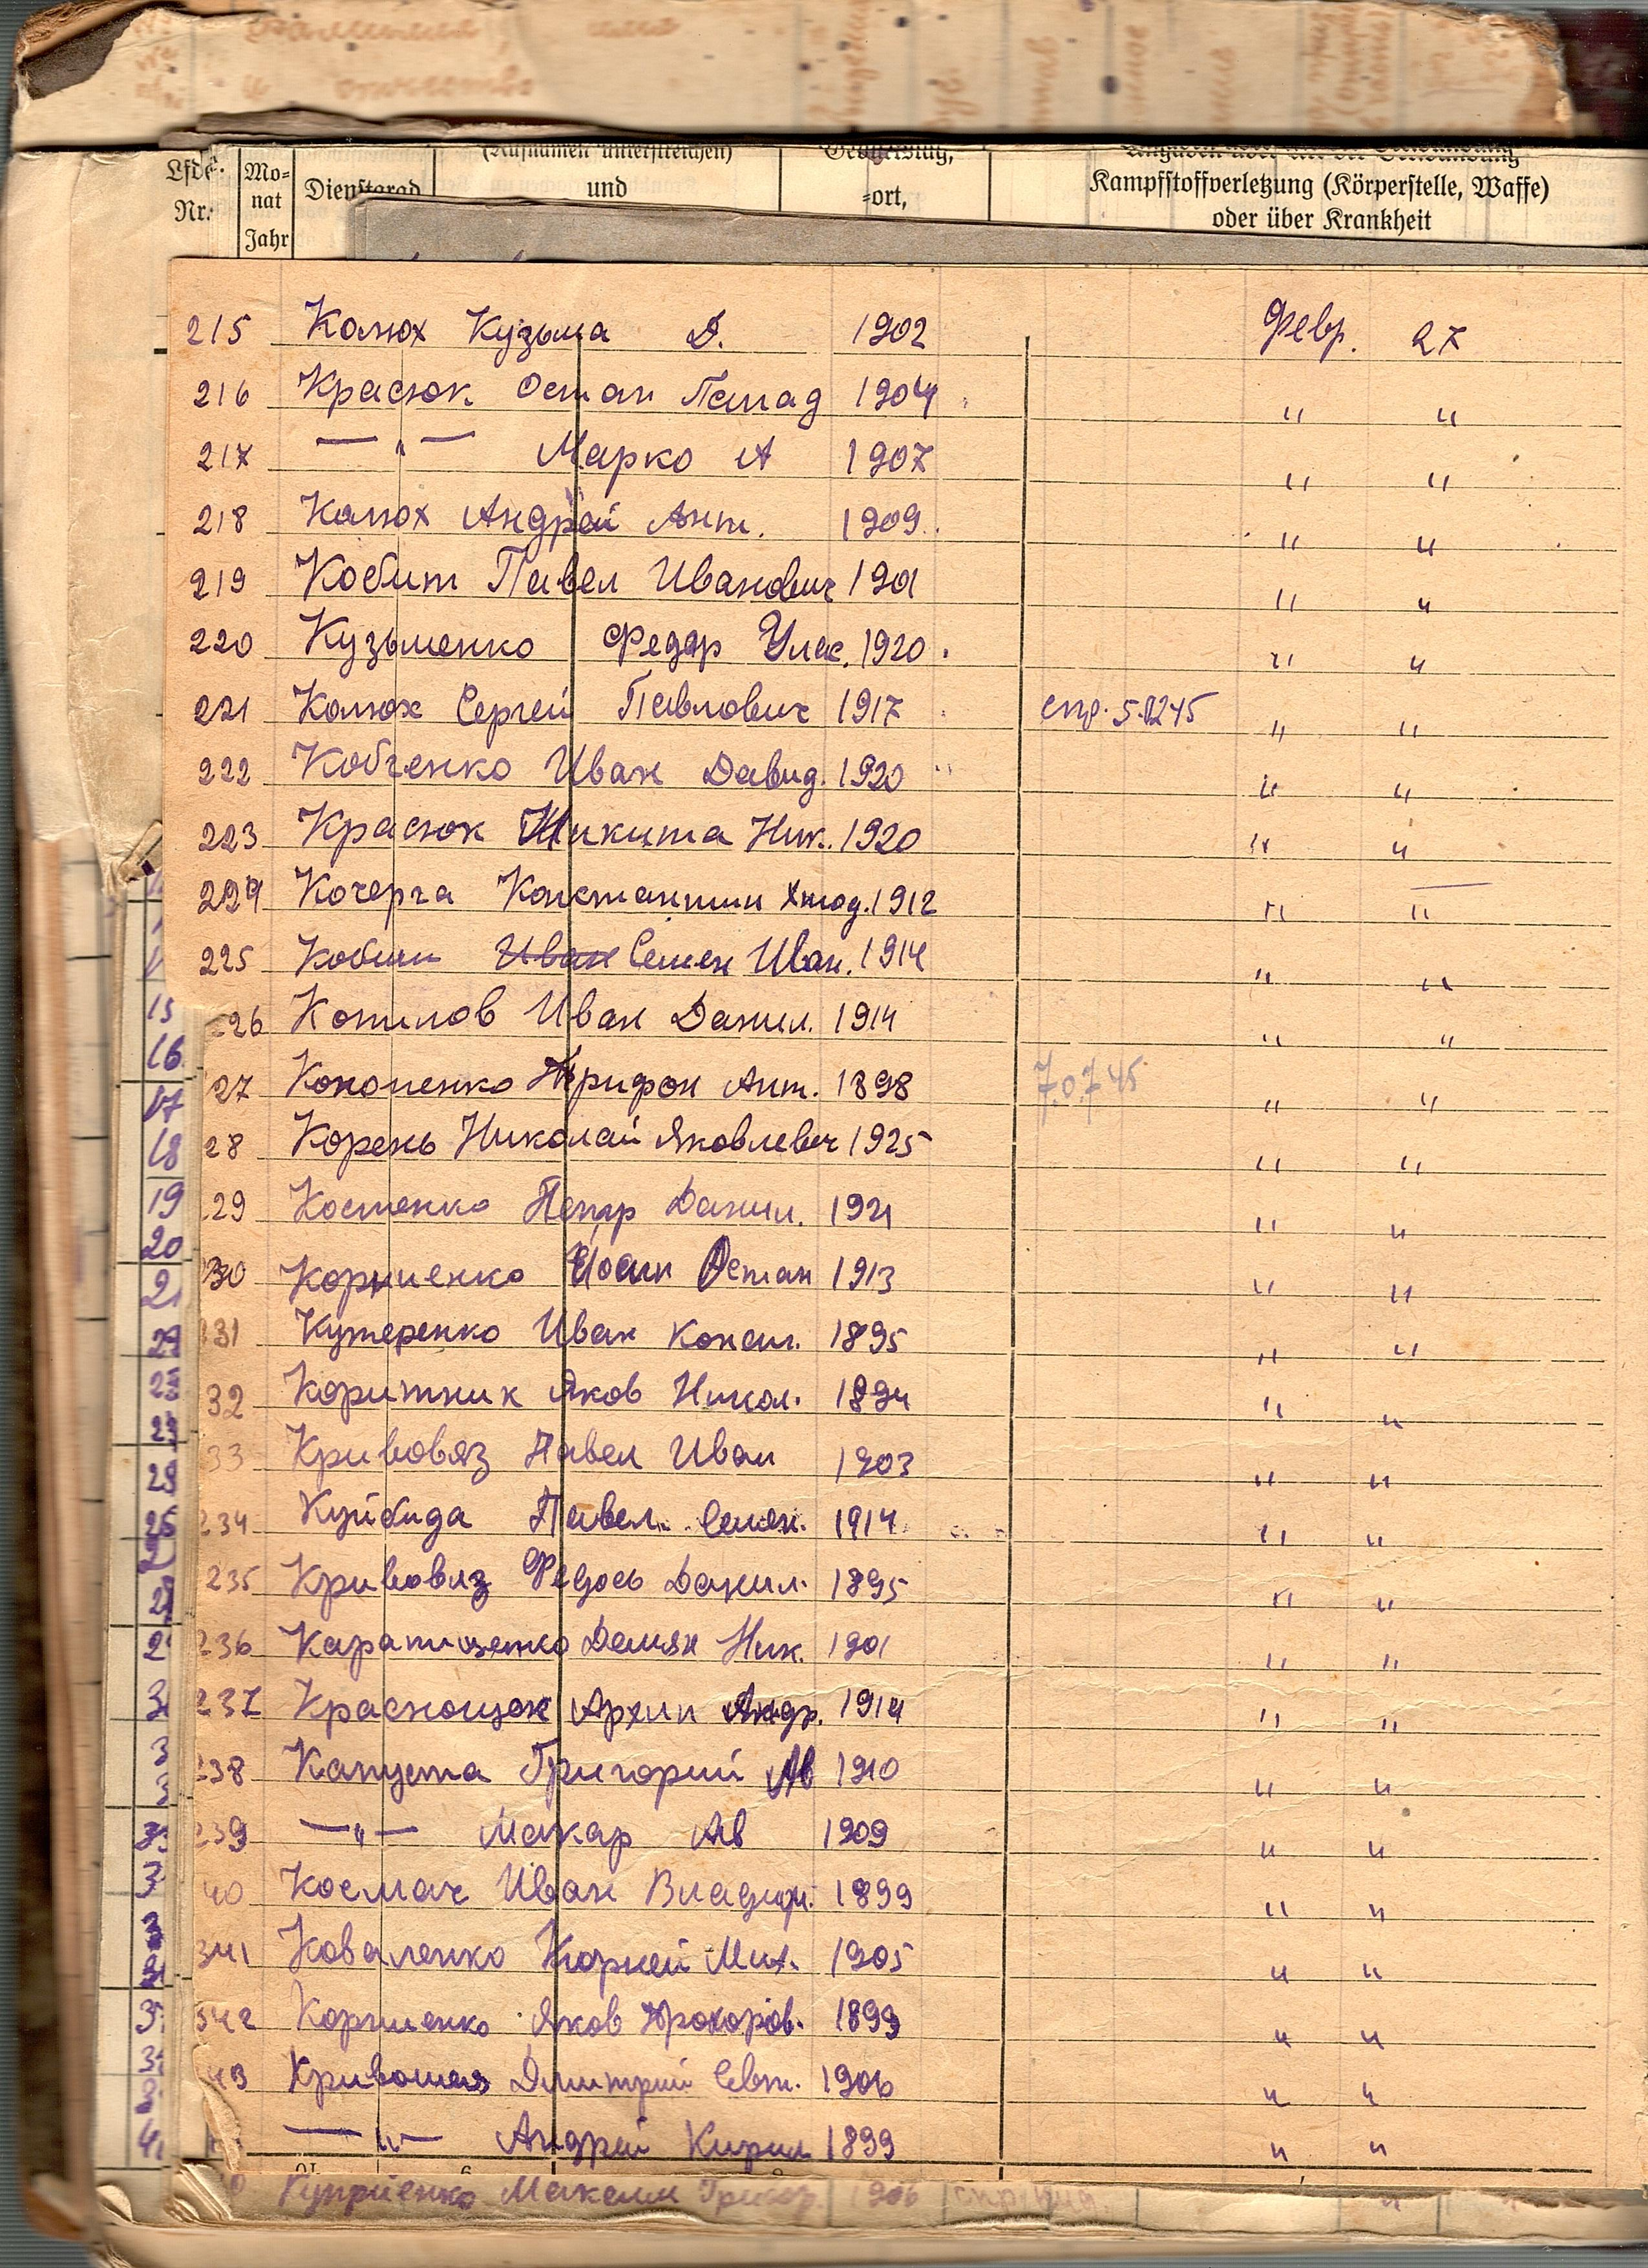 Lfde.
Nr.
Mo-
nat
Jahr
Dienstgrad
(Rufnamen unterstreichen)
und
Geburtstag,
-ort,
Kampfstoffverletzung (Körperstelle, Waffe)
oder über Krankheit
215 Калюх Кузьма Д. 1902 Февр. 27
216 Красюк Остап Панад 1904 " "
217 — " — Марко А 1907 " "
218 Калюх Андрей Ант. 1909. " "
219 Кобит Павел Иванович 1901 " "
220 Кузьменко Федор Улас. 1920. " "
221 Калюх Сергей Павлович 1917 спр. 5.0245 " "
222 Кобченко Иван Давид. 1920 " "
223 Красюк Никита Ник. 1920 " "
224 Кочерга Константин 1912 " "
225 Кобит Иван Семен Иван. 1914 " "
226 Копилов Иван Данил. 1914 " "
27 Кононенко Трифон Ант. 1898 7.0.745 " "
28 Корень Николай Яковлевич 1925 " "
29 Костенко Петр Данил. 1921 " "
230 Корниенко Йосип Остап 1913 " "
31 Кучеренко Иван Конст. 1895 " "
32 Коритник Яков Никол. 1894 " "
33 Кривовяз Павел Иван 1903 " "
234 Куйбида Павел Семен. 1914 " "
235 Кривовяз Федось Данил. 1895 " "
236 Демян Ник. 1901 " "
237 Краснощок Архип Андр. 1914 " "
238 Капуста Григорий Ав 1910 " "
239 — " — Макар Ав 1909 " "
40 Космач Иван Владим. 1899 " "
341 Коваленко Корней Мих. 1905 " "
342 Корниенко Яков Прохоров. 1899 " "
43 Кривошея Дмитрий Евт. 1906 " "
— " — Андрей Кирил 1899 " "
Куприенко Максим Григор. 1906
15
16
17
18
19
20
21